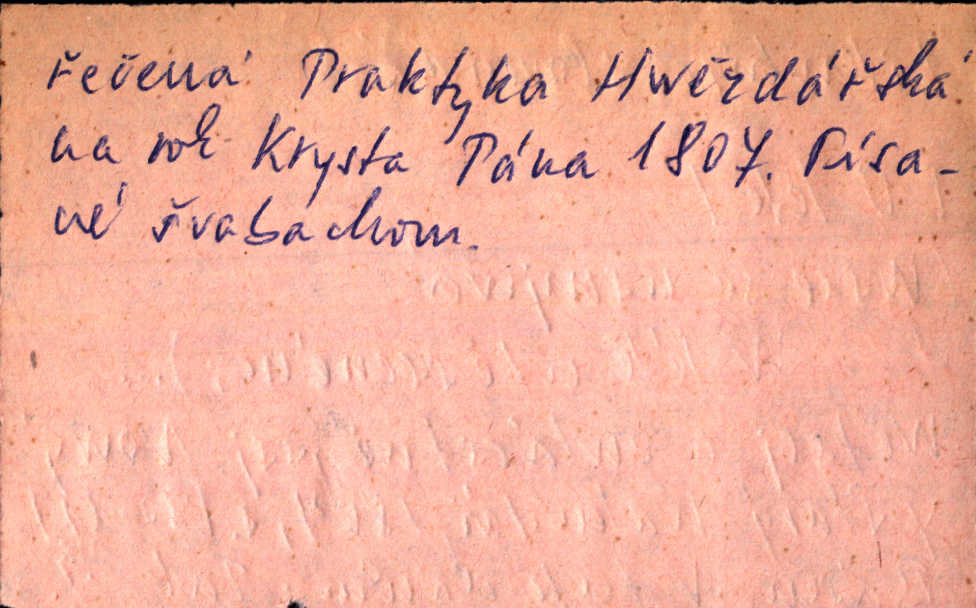 řečená Praktyka Hwězdářská
na rok Krysta Pána 1807. Písa-
né švabachom.